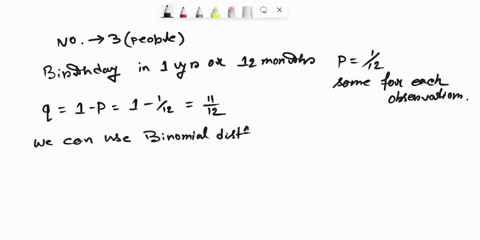 No. → 3 (people)
Birthday in 1 yrs or 12 months
P = 1/12
same for each
observation.
q = 1 - P = 1 - 1/12 = 11/12
we can use Binomial distⁿ